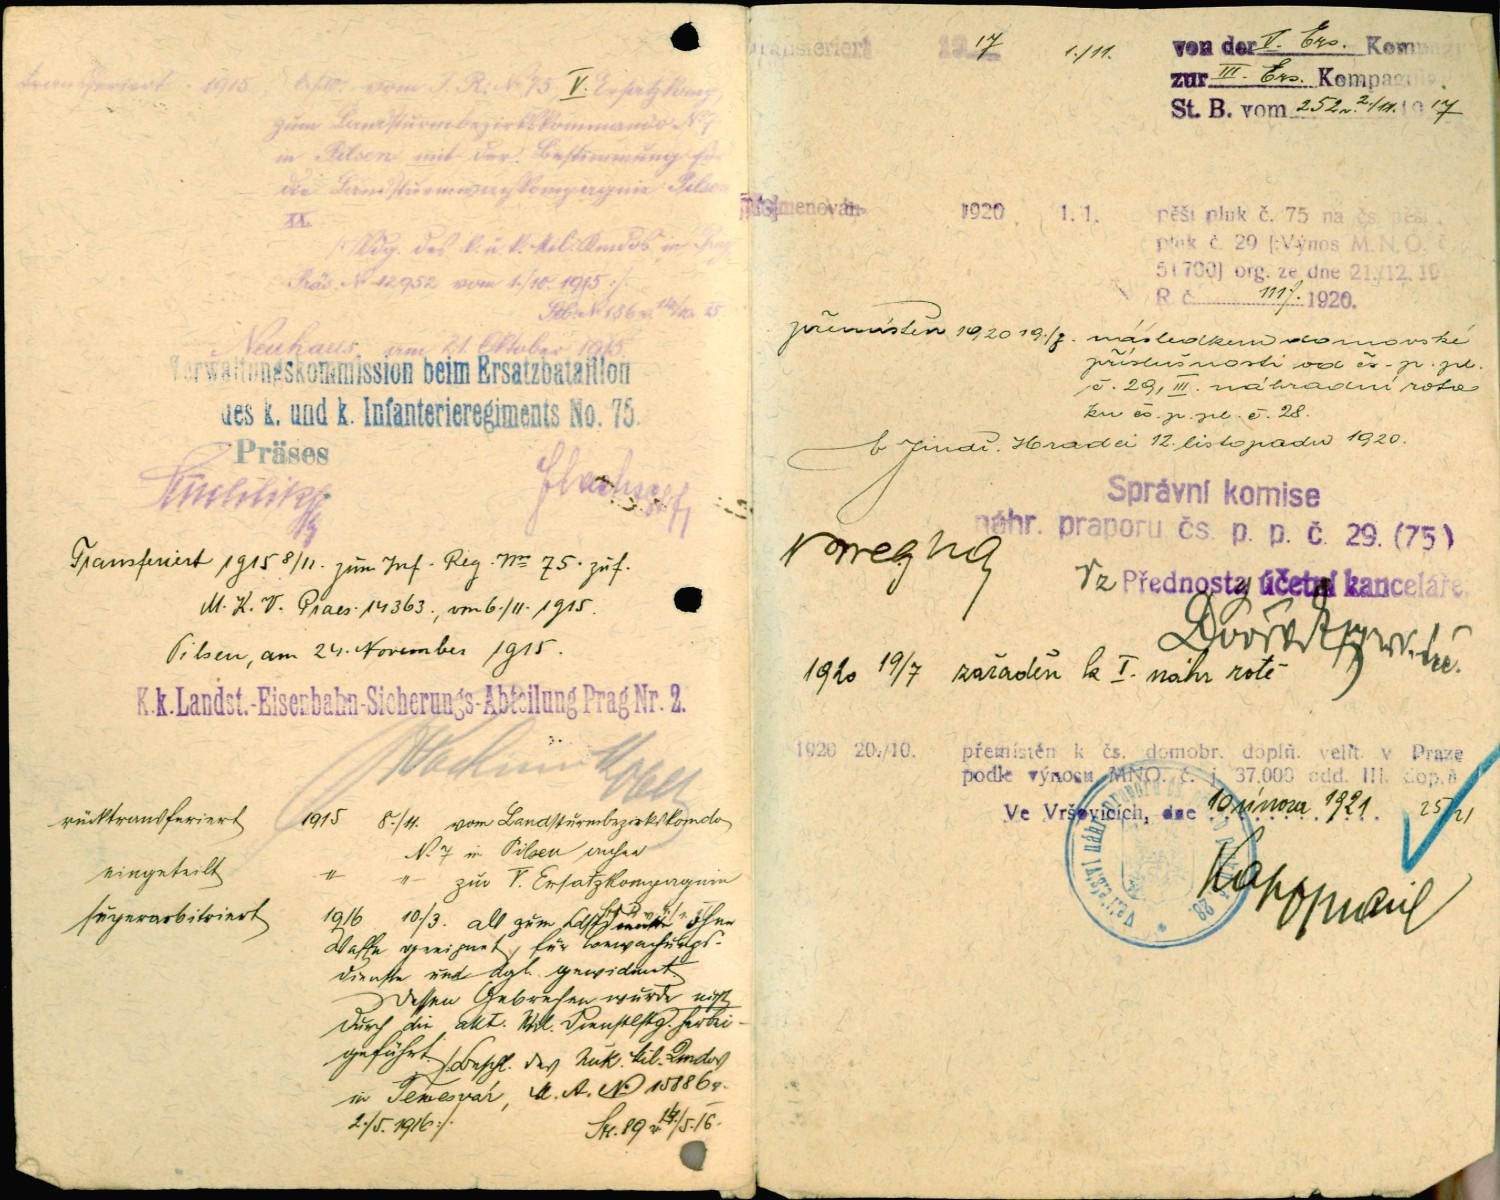 transferiert 1915 vom I. R. No 75 V. Ersatzkomp,
zum Landsturmbezirkskommando No 7
in Pilsen mit der Bestimmung für
die Landsturmwachkompagnie Pilsen
XX.
/:Bdg. des k. u. k. Mil. Kmdos in Prag
Präs. No 12952 vom 1./10. 1915:/.
Neuhaus, am 21. Oktober 1915
Verwaltungskommission beim Ersatzbataillon
des k. und k. Infanterieregiments No. 75.
Präses
Transferiert 1915 8/11. zum Inf. Reg. Nro 75. zuf.
M. K. V. Praes. 14363., von 6./11. 1915.
Pilsen, am 24. November 1915.
K.k. Landst.-Eisenbahn-Sicherungs-Abteilung Prag Nr. 2.
rücktransferiert 1915 8./11. vom Landsturmbezirkskomdo
No. 7 in Pilsen
eingeteilt " " zur V. Ersatzkompagnie
superarbitriert 1916 10/3. als zum ohne
Waffe geeignet, für Bewachungs-
dienste und dgl. gewidmet.
Dessen Gebrechen wurde nicht
durch die akt. Mil. Dienstlstg. herbei-
geführt /:Befehl. des k.u.k. Mil. Kmdos
in Temesvár, M. A. No 15886 v.
2./5. 1916:/.
transferiert 1917 1./11. von der V. Ers. Kompagnie
zur III. Ers. Kompagnie.
St. B. vom 252 v. 2./11. 1917
1920 1. 1. pěší pluk č. 75 na čs. pěší
pluk č. 29 [:Výnos M. N. O. č.
51700] org. ze dne 21./12. 19
R. č. 1920.
přemístěn 1920 19./7. následkem domovské
příslušnosti od čs. p. pl.
č. 29, III. náhradní rota
ku čs. p. pl. č. 28.
V Jindř. Hradci 12. listopadu 1920.
Správní komise
náhr. praporu čs. p. p. č. 29. (75)
Vz Přednosta účetní kanceláře.
1920 19/7 zařaděn k I. náhr rotě
1920 20./10. přemístěn k čs. domobr. doplň. velit. v Praze
podle výnosu MNO. č. j. 37.000 odd. III. dopl.
Ve Vršovicích, dne 10 února 1921 25/21